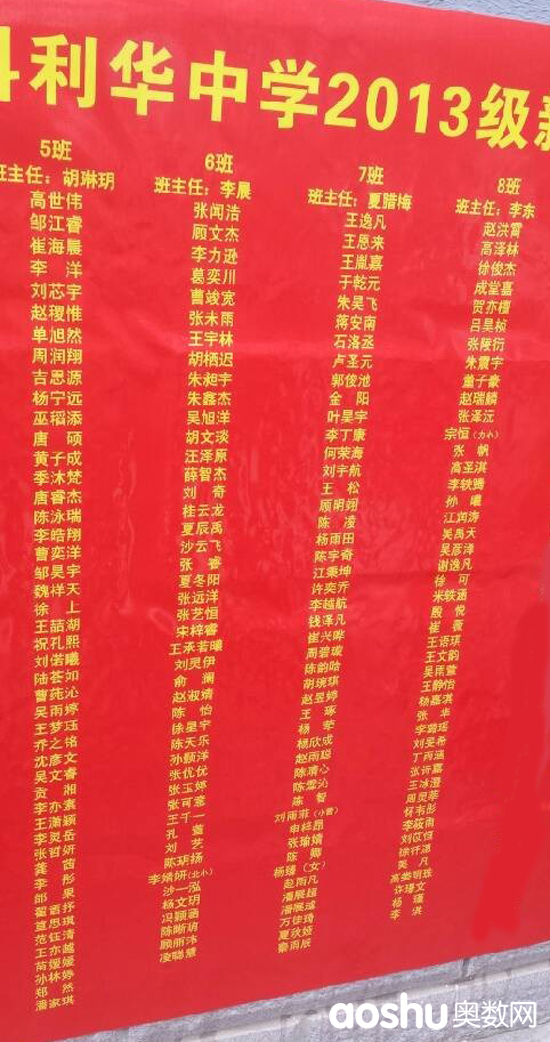 利华中学2013级新
5班
班主任：胡琳玥
高世伟
邹江睿
崔海晨
李 洋
刘芯宇
赵稷惟
单旭然
周润翔
吉恩源
杨宁远
巫稻添
唐 硕
黄子成
季沐梵
唐睿杰
陈泳瑞
李皓翔
曹奕洋
邹昊宇
魏样天
徐 上
王喆湖
祝孔熙
刘偌曦
陆荟如
吴雨婷
王梦珏
乔之铭
沈彦文
吴文睿
贡 湘
李亦素
王潇颖
李灵岳
张哲妍
龚 茵
李 彤
范钰清
王亦越
苗媛媛
孙林婷
郑 然
潘家琪
6班
班主任：李晨
张闻浩
顾文杰
李力逊
葛奕川
曹竣宽
张未雨
王宇林
胡栖迟
朱昶宇
朱鑫杰
吴旭洋
胡文琰
汪泽原
薛智杰
刘 奇
桂云龙
夏辰禹
沙云飞
张 睿
夏冬阳
张远洋
张艺恒
宋梓睿
王承若曦
刘灵伊
俞 澜
赵淑婧
陈 怡
徐星宇
陈天乐
孙颢洋
张优优
张玉婷
张可意
王千一
孔 萱
刘 艺
陈玥扬
李婧妍(北小)
沙一泓
杨文玥
冯颖涵
陈晰玥
顾丽沛
凌聪慧
7班
班主任：夏腊梅
王逸凡
王恩来
王胤嘉
于乾元
朱昊飞
蒋安南
石洛丞
卢圣元
郭俊池
金 阳
叶昊宇
李丁康
何荣海
刘宇航
王 松
顾明翊
陈 凌
杨雨田
陈宇奇
江秉坤
许奕乔
李越航
钱泽凡
崔兴晔
周碧璇
陈韵晗
胡琬琪
赵昱婷
王 琢
杨 荦
杨欣成
赵雨聪
陈清心
陈霂沁
陈 智
申梓昂
张瑜婧
陈 卿
杨臻（女）
赵雨凡
潘展超
潘展越
万佳琦
夏玫娅
秦雨辰
8班
班主任：李东
赵洪霄
高泽林
徐俊杰
成堂嘉
贺亦檀
吕昊桢
张陵衍
朱震宇
董子豪
赵瑞麟
张泽沅
宗恒(力小)
张 帆
高圣淇
李轶腾
孙 曦
江润涛
吴禹天
吴彦泽
谢逸凡
徐 可
米轶涵
殷 悦
崔 薇
王语琪
王文韵
吴雨萱
王静怡
杨嘉淇
张 华
李璐瑶
刘旻希
丁雨涵
张昕嘉
王冰滢
周灵荦
许瑾文
杨 瑾
李 淇
aoshu奥数网